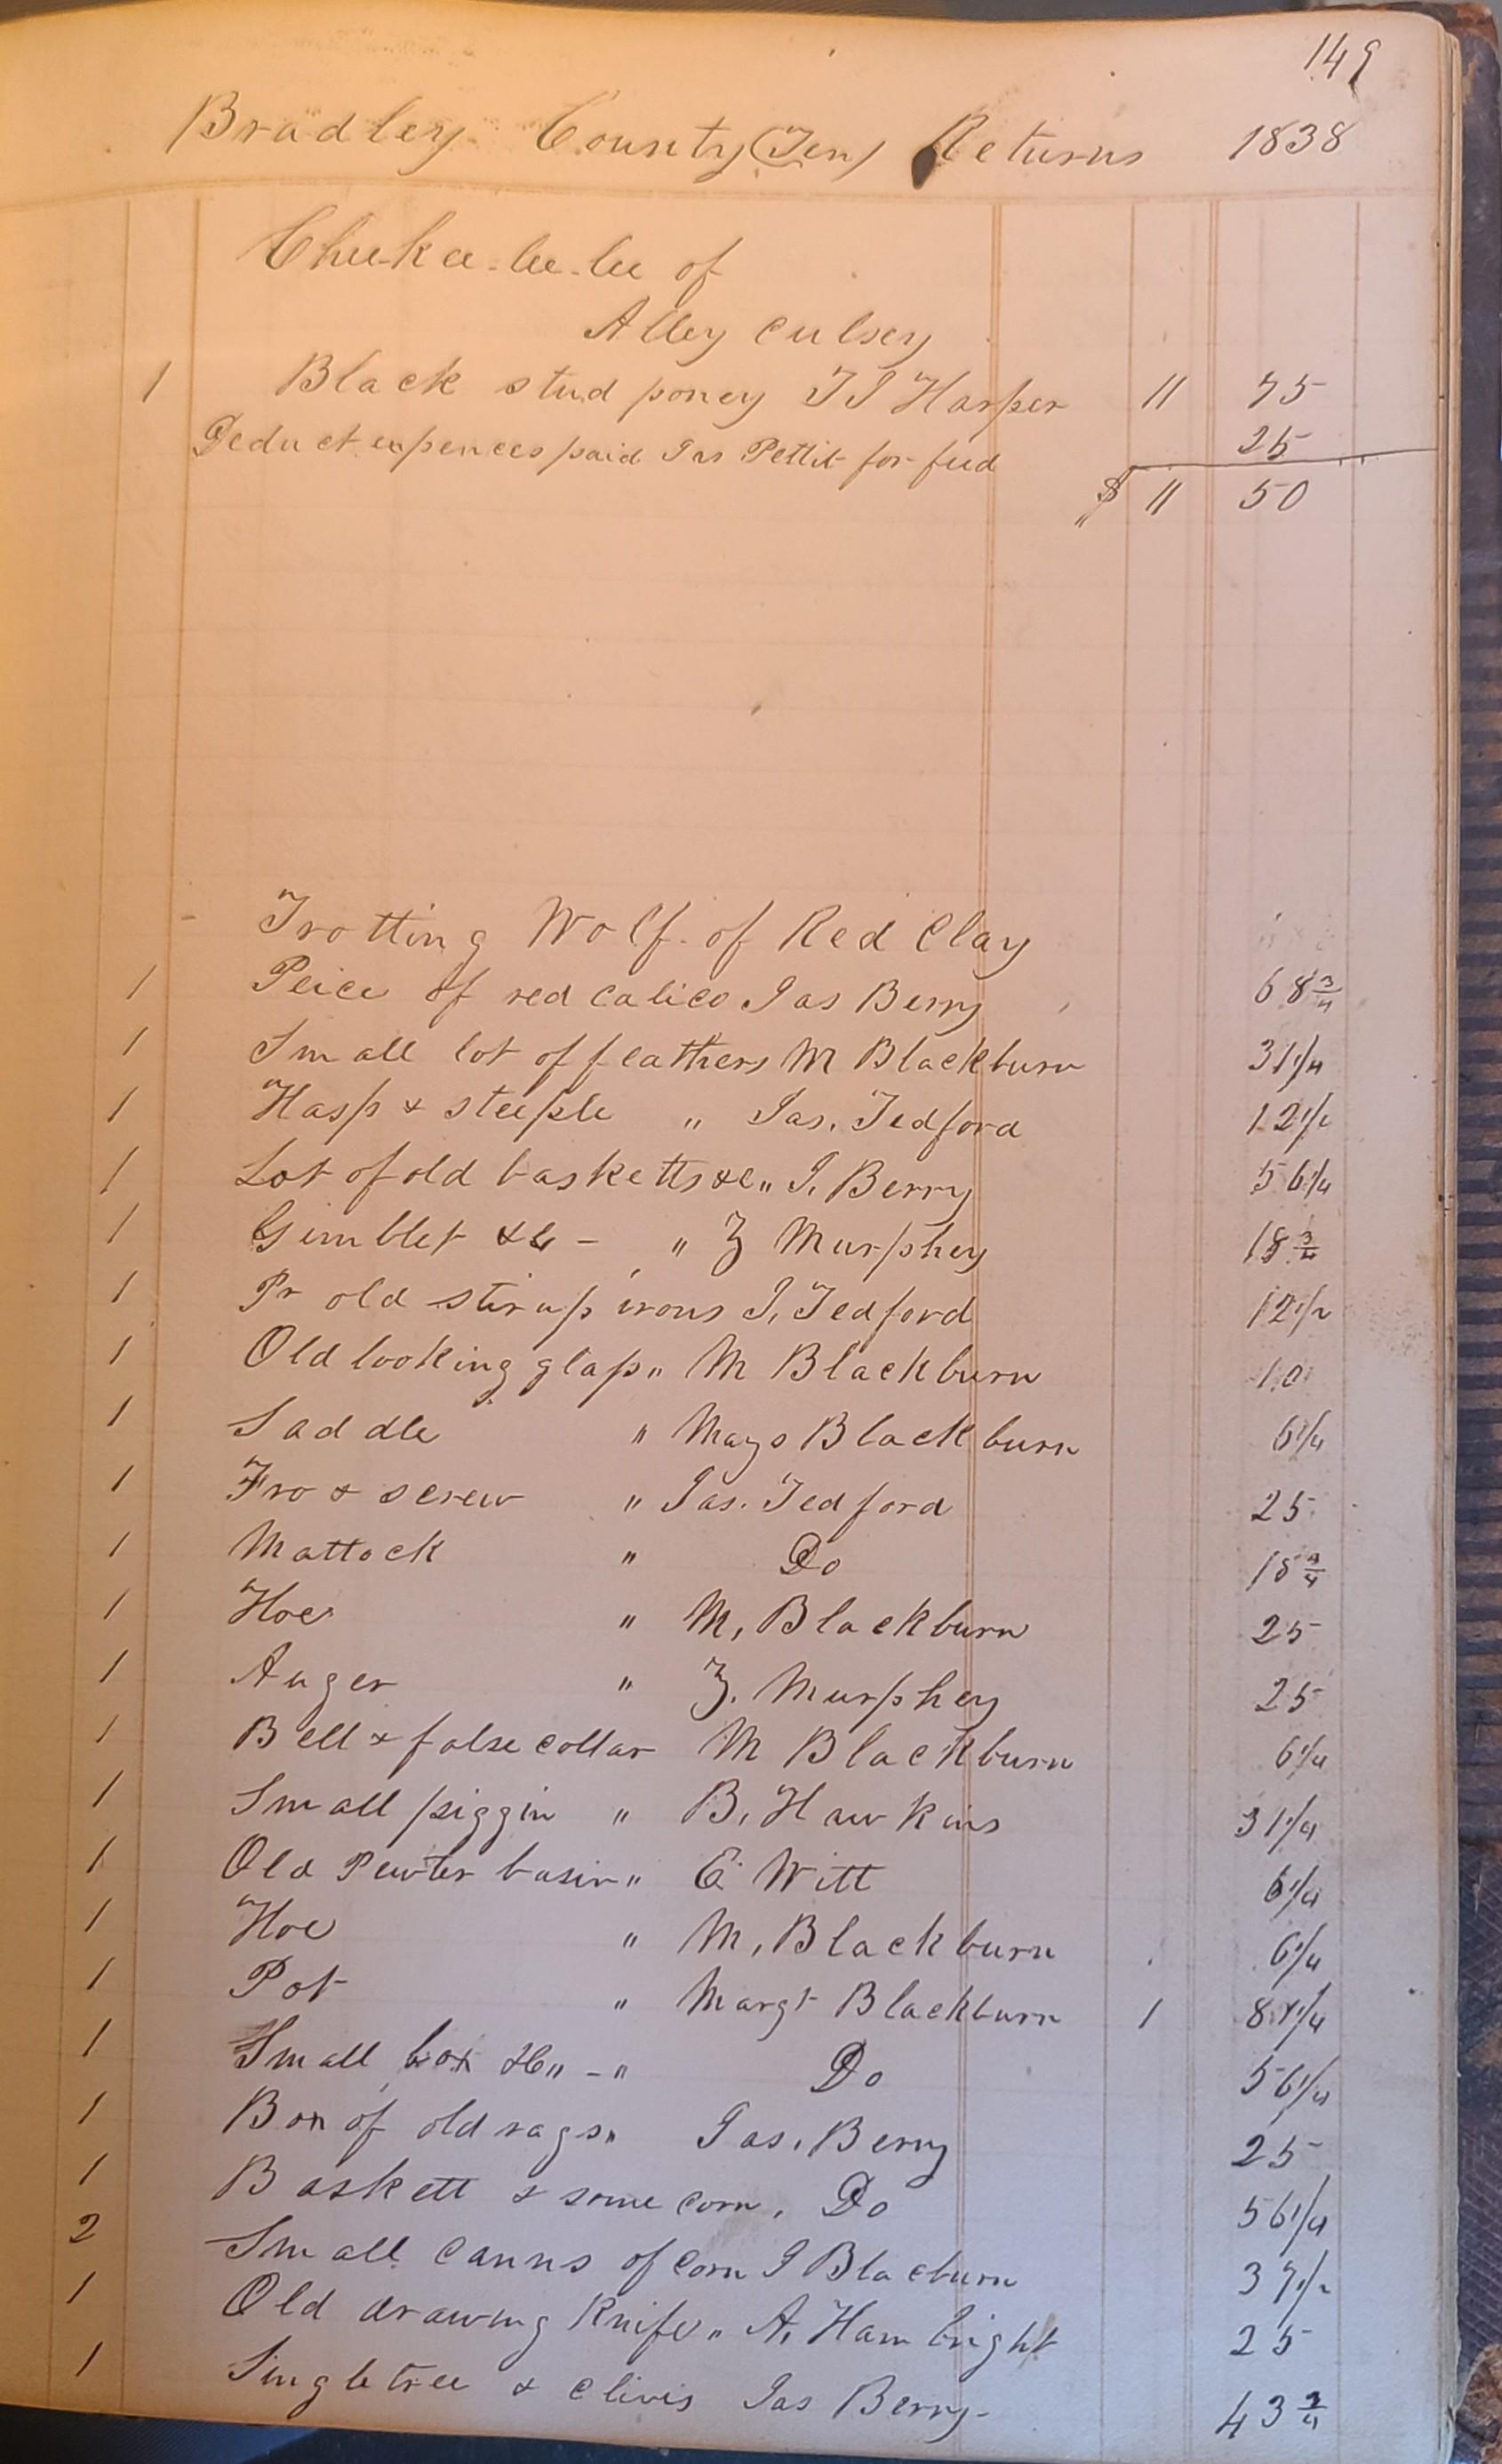 149
Bradley County (Ten) Returns 1838
Chu-ka-lee-lee of
Alley culsey
1 Black stud poney T J Harper 11 75
Deduct expences paid Jas Pettit for feed 25
$ 11 50
Trotting Wolf of Red Clay
1 Peice of red calico Jas Berry 68 3/4
1 Small lot of feathers M Blackburn 31 1/4
1 Hasp & steeple " Jas. Tedford 12 1/2
1 Lot of old basketts &c " J. Berry 56 1/4
1 Gimblet &c - " Z Murphey 18 3/4
1 Pr old stirup irons J. Tedford 12 1/2
1 Old looking glass " M Blackburn 10
1 Saddle " Mays Blackburn 6 1/4
1 Fro & screw " Jas. Tedford 25
1 Mattock " Do 18 3/4
1 Hoe " M, Blackburn 25
1 Auger " Z. Murphey 25
1 Bell & false collar M Blackburn 6 1/4
1 Small piggin " B. Hawkins 31 1/4
1 Old Pewter basin " E Witt 6 1/4
1 Hoe " M, Blackburn 6 1/4
1 Pot " Margt Blackburn 1 81 1/4
1 Small box &c " - " Do 56 1/4
1 Box of old rags " Jas. Berry 25
1 Baskett & some corn, Do 56 1/4
2 Small canns of corn J Blacburn 37 1/2
1 Old drawing knife " A. Hambright 25
1 Singletree & clivis Jas Berry - 43 3/4